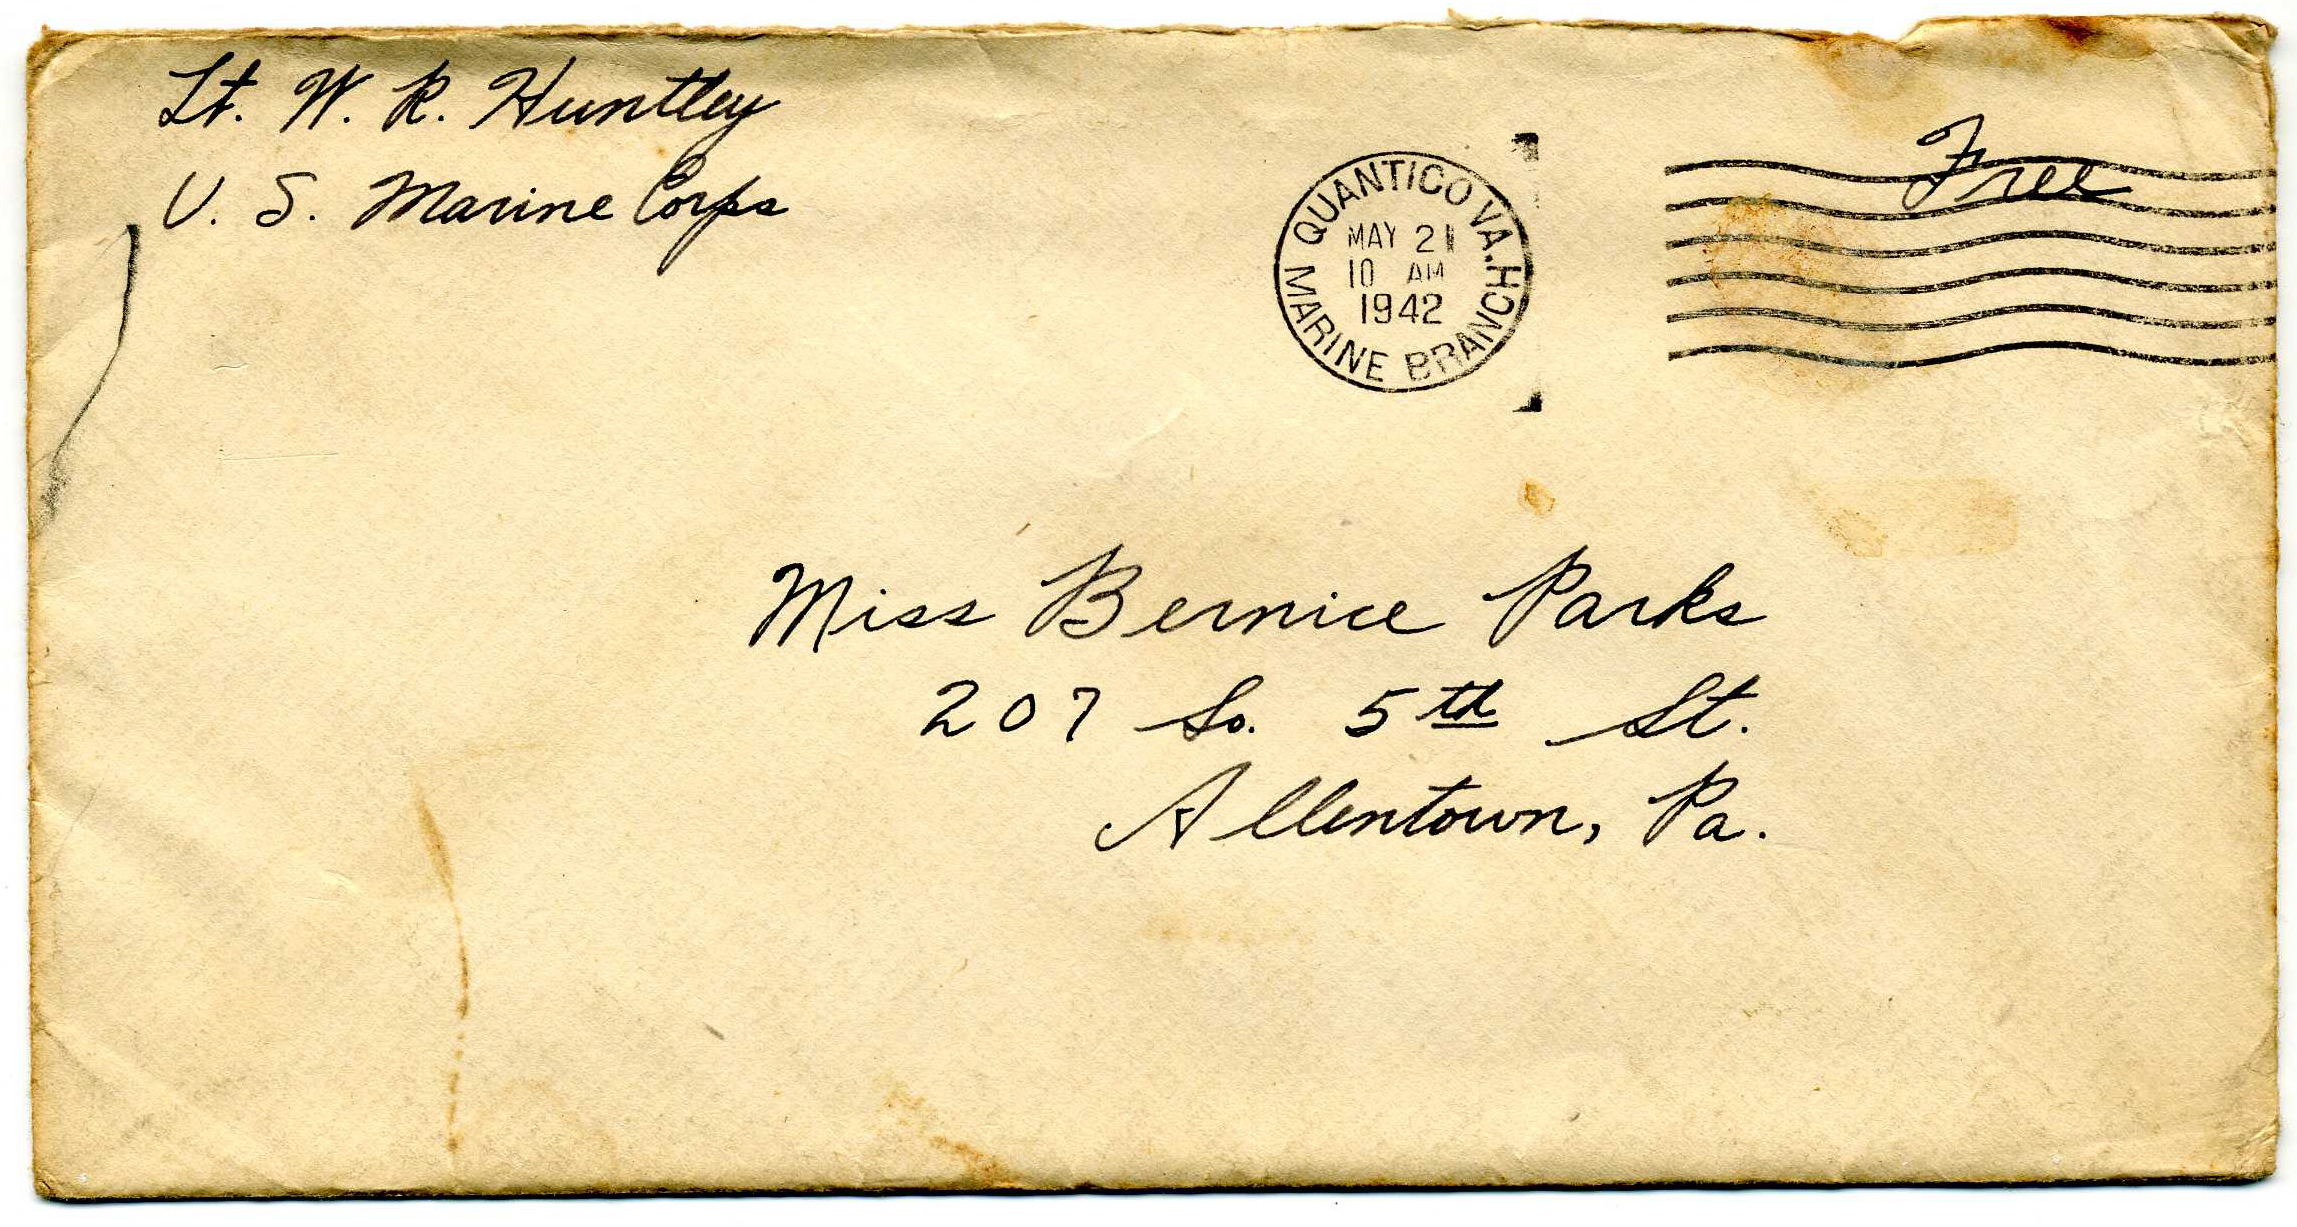 Lt. W. R. Huntley
U. S. Marine Corps
QUANTICO VA.
MARINE BRANCH
MAY 21
10 AM
1942
Free
Miss Bernice Parks
207 So. 5th St.
Allentown, Pa.